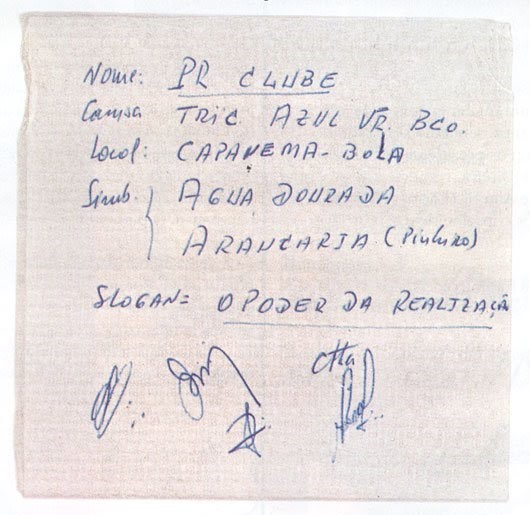 Nome: PR CLUBE
Camisa TRIC. AZUL VR. BCO.
Local: CAPANEMA - BOLA
Simb. AGUA DOURADA
ARAUCARIA (Pinheiro)
SLOGAN= O PODER DA REALIZAÇÃO